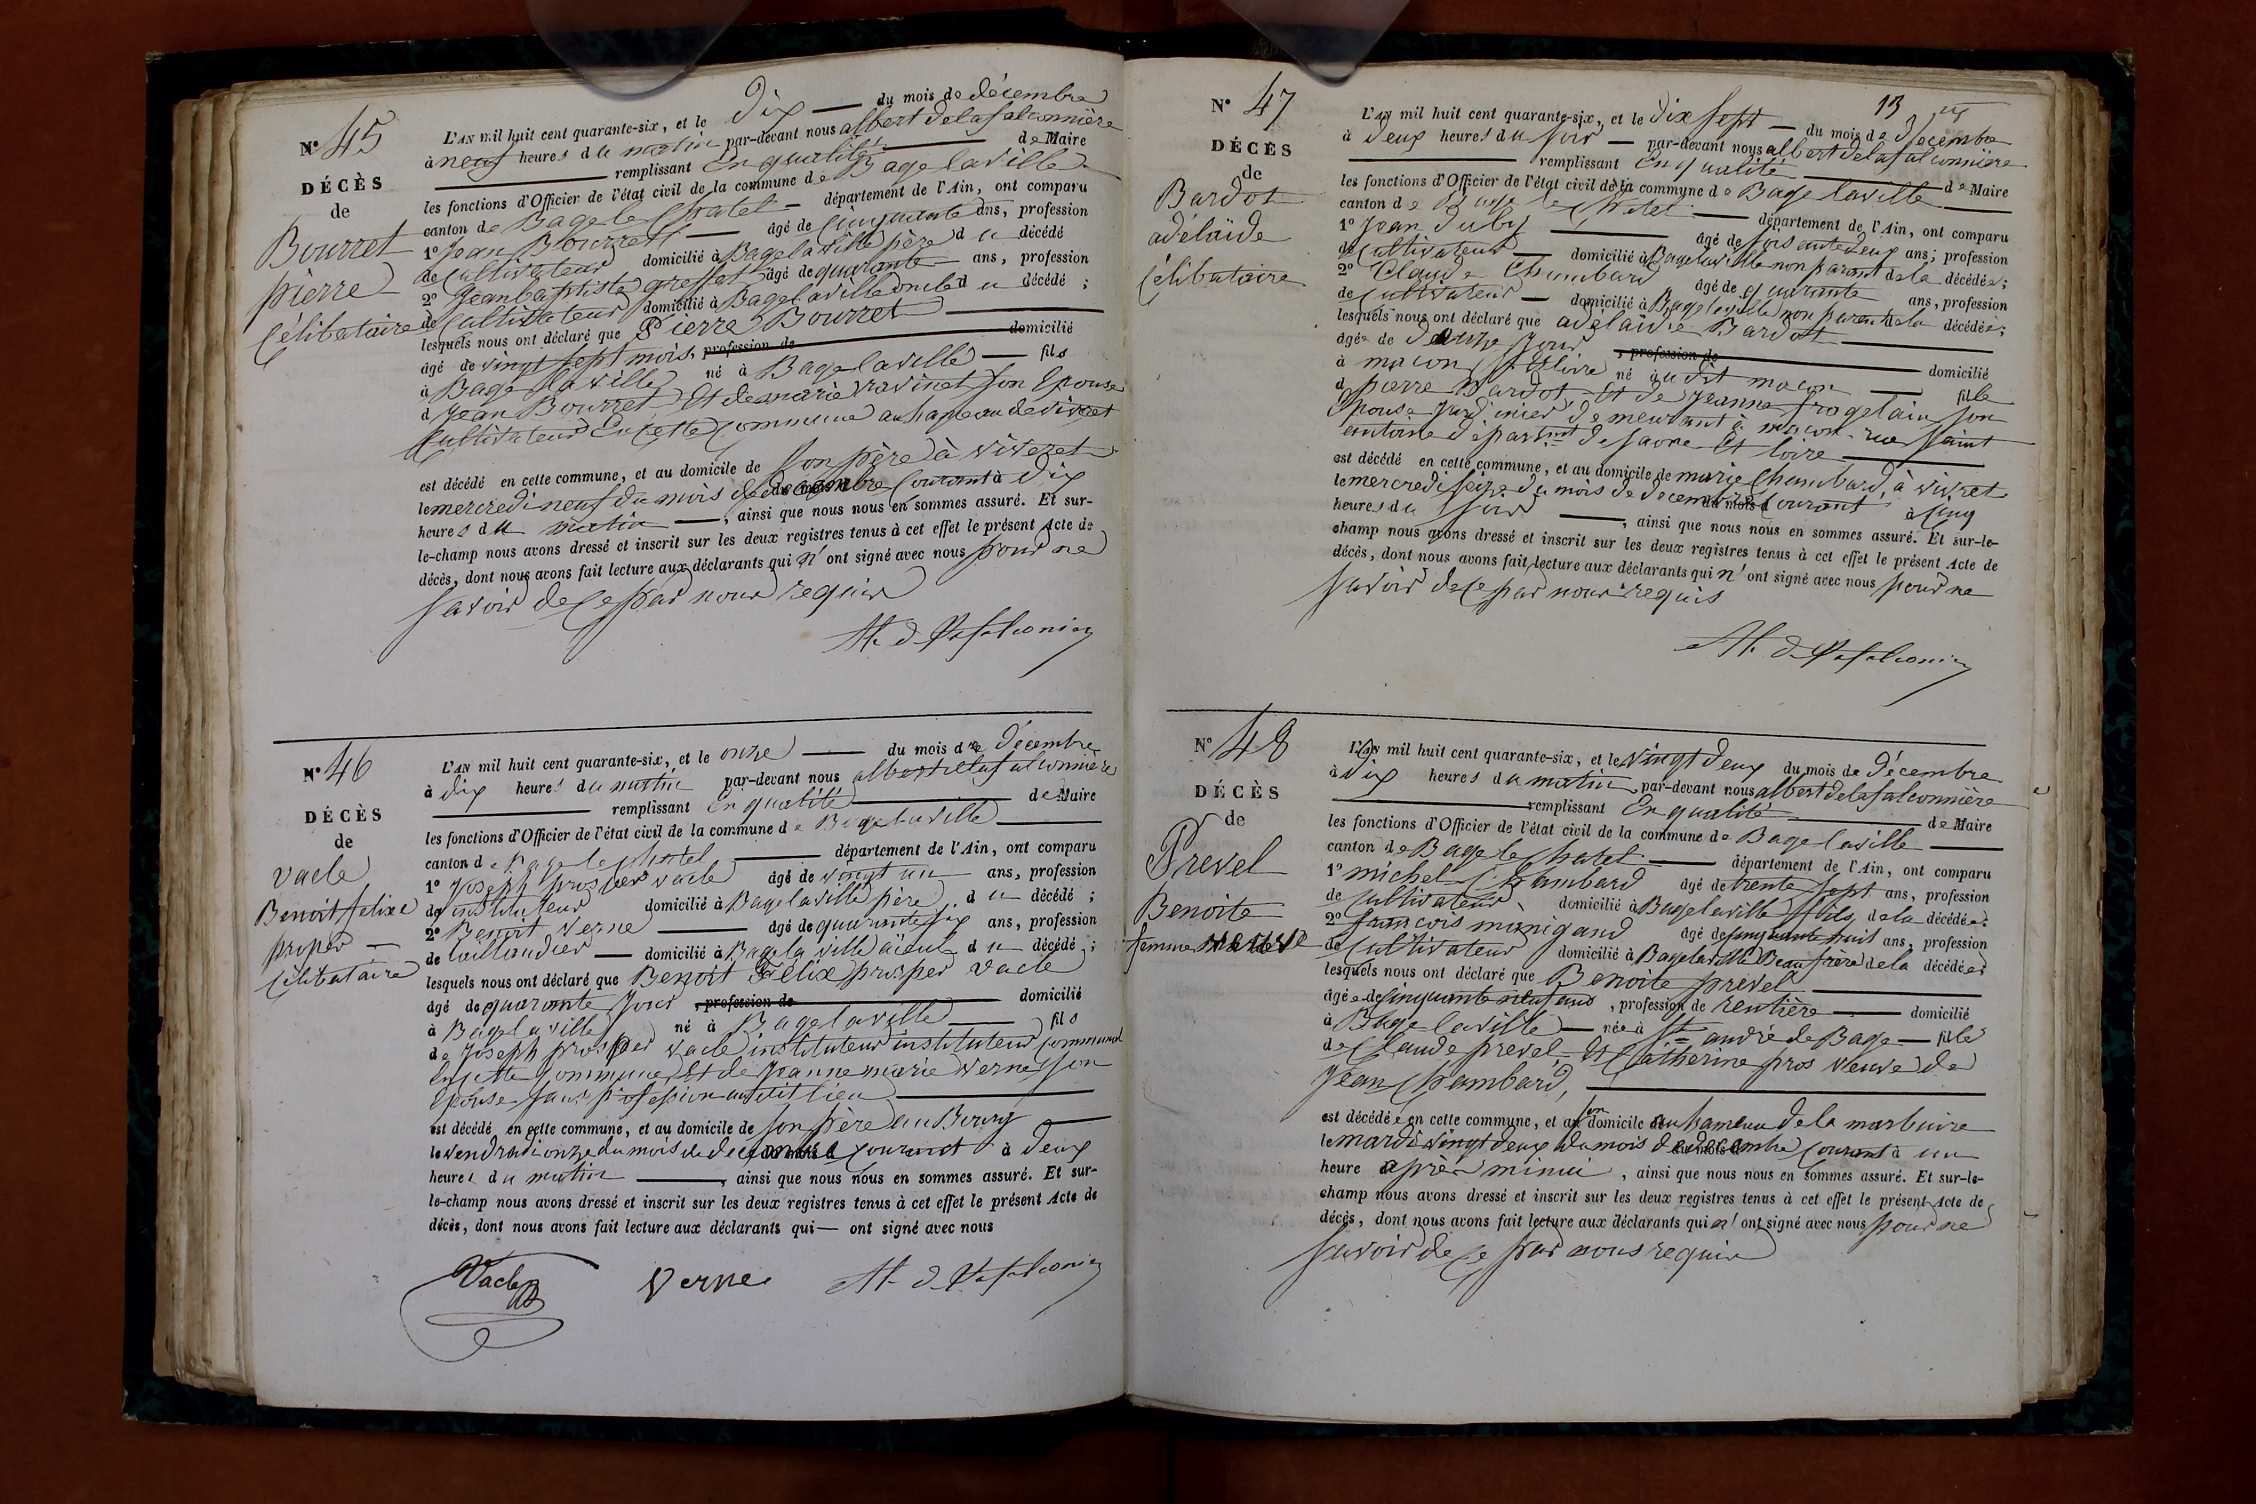 N° 45
DÉCÈS
de
Bourret
pierre
Célibataire
L'AN mil huit cent quarante-six, et le dix — du mois de décembre
à neuf heures du matin par-devant nous albert de lafalconnière
remplissant En qualité de Maire
les fonctions d'Officier de l'état civil de la commune de Bagé laville
canton de Bagé le Chatel — département de l'Ain, ont comparu
1° Jean Bourret — âgé de Cinquante ans, profession
de Cultivateur domicilié à Bagé laville père du décédé
2° Jean baptiste greffet âgé de quarante ans, profession
de Cultivateur domicilié à Bagé laville oncle du décédé ;
lesquels nous ont déclaré que Pierre Bourret
âgé de vingt sept mois, profession de domicilié
à Bagé laville né à Bagé laville — fils
d Jean Bourret Et de marie ravinet son Epouse
Cultivateur En Cette Commune au hameau de viveret
est décédé en cette commune, et au domicile de son père à viveret
le mercredi neuf du mois de décembre Courant à dix
heures du matin —, ainsi que nous nous en sommes assuré. Et sur-
le-champ nous avons dressé et inscrit sur les deux registres tenus à cet effet le présent Acte de
décès, dont nous avons fait lecture aux déclarants qui n'ont signé avec nous pour ne
savoir de Ce par nous requis
Al. de Lafalconnière
N° 46
DÉCÈS
de
vacle
Benoit felixe
prosper —
Célibataire
L'AN mil huit cent quarante-six, et le onze — du mois de décembre
à dix heures du matin par-devant nous albert de lafalconnière
remplissant En qualité de Maire
les fonctions d'Officier de l'état civil de la commune de Bagé laville
canton de Bagé le chatel — département de l'Ain, ont comparu
1° Joseph prosper vacle âgé de vingt un ans, profession
de instituteur domicilié à Bagé laville père du décédé ;
2° Benoit verne — âgé de quarante six ans, profession
de taillandier — domicilié à Bagé la ville aïeul du décédé ;
lesquels nous ont déclaré que Benoit Félix prosper vacle
âgé de quarante jour, profession de domicilié
à Bagé laville né à Bagé laville — fils
de Joseph prosper vacle instituteur instituteur communal
En cette Commune Et de Jeanne marie verne son
Epouse sans profession au dit lieu
est décédé en cette commune, et au domicile de son père au Bourg
le vendredi onze du mois de décembre Courant à deux
heures du matin —, ainsi que nous nous en sommes assuré. Et sur-
le-champ nous avons dressé et inscrit sur les deux registres tenus à cet effet le présent Acte de
décès, dont nous avons fait lecture aux déclarants qui — ont signé avec nous
Vacle Verne Al. de Lafalconnière
13
N° 47
DÉCÈS
de
Bardot
adélaïde
Célibataire
L'AN mil huit cent quarante-six, et le dix sept — du mois de décembre
à deux heures du soir — par-devant nous albert de lafalconnière
remplissant En qualité de Maire
les fonctions d'Officier de l'état civil de la commune de Bagé laville
canton de Bagé le Chatel — département de l'Ain, ont comparu
1° Jean duby — âgé de soisante deux ans; profession
de Cultivateur — domicilié à Bagé laville non parant de la décédée;
2° Claude Chambard âgé de quarante ans, profession
de Cultivateur — domicilié à Bagé laville non parent de la décédée;
lesquels nous ont déclaré que adélaïde Bardot
âgée de douze Jour, profession de domicilié
à macon né audit macon — fille
d pierre Bardot, Et de Jeanne son
Epouse Jardinier demeurant à macon rue Saint
antoine départmt de saone Et loire
est décédé en cette commune, et au domicile de marie Chambard, à vivret
le mercredi seize du mois de décembre Courant à Cinq
heures du soir —, ainsi que nous nous en sommes assuré. Et sur-le-
champ nous avons dressé et inscrit sur les deux registres tenus à cet effet le présent Acte de
décès, dont nous avons fait lecture aux déclarants qui n'ont signé avec nous pour ne
savoir de Ce par nous requis
Al. de Lafalconnière
N° 48
DÉCÈS
de
Prevel
Benoite
femme veuve
L'AN mil huit cent quarante-six, et le vingt deux du mois de décembre
à dix heures du matin par-devant nous albert de lafalconnière
remplissant En qualité de Maire
les fonctions d'Officier de l'état civil de la commune de Bagé laville
canton de Bagé le Chatel — département de l'Ain, ont comparu
1° michel Chambard âgé de trente sept ans, profession
de Cultivateur domicilié à Bagé laville fils de la décédée.
2° françois munigand âgé de Cinquante huit ans, profession
de Cultivateur domicilié à Bagé laville Beau frère de la décédée
lesquels nous ont déclaré que Benoite prevel
âgée de Cinquante neuf ans, profession de rentière — domicilié
à Bagé laville — née à St andré de Bagé — fille
de Claude prevel, Et Catherine pros veuve de
Jean Chambard,
est décédée en cette commune, et au son domicile au hameau de la marbuire
le mardi vingt deux du mois de décembre Courant à un
heure après minui, ainsi que nous nous en sommes assuré. Et sur-le-
champ nous avons dressé et inscrit sur les deux registres tenus à cet effet le présent Acte de
décès, dont nous avons fait lecture aux déclarants qui n'ont signé avec nous pour ne
savoir de Ce par nous requis